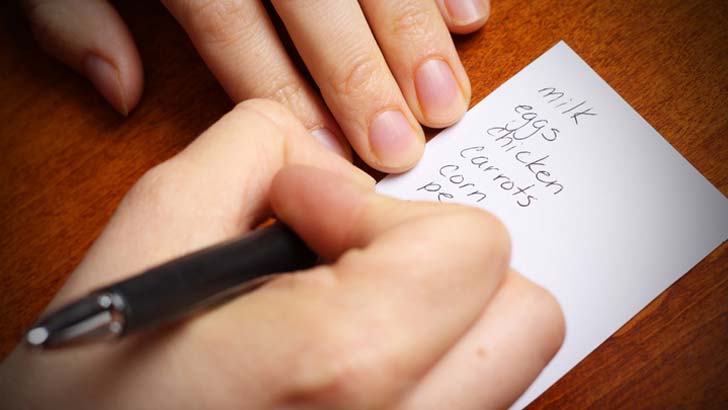 milk
eggs
chicken
carrots
corn
pe